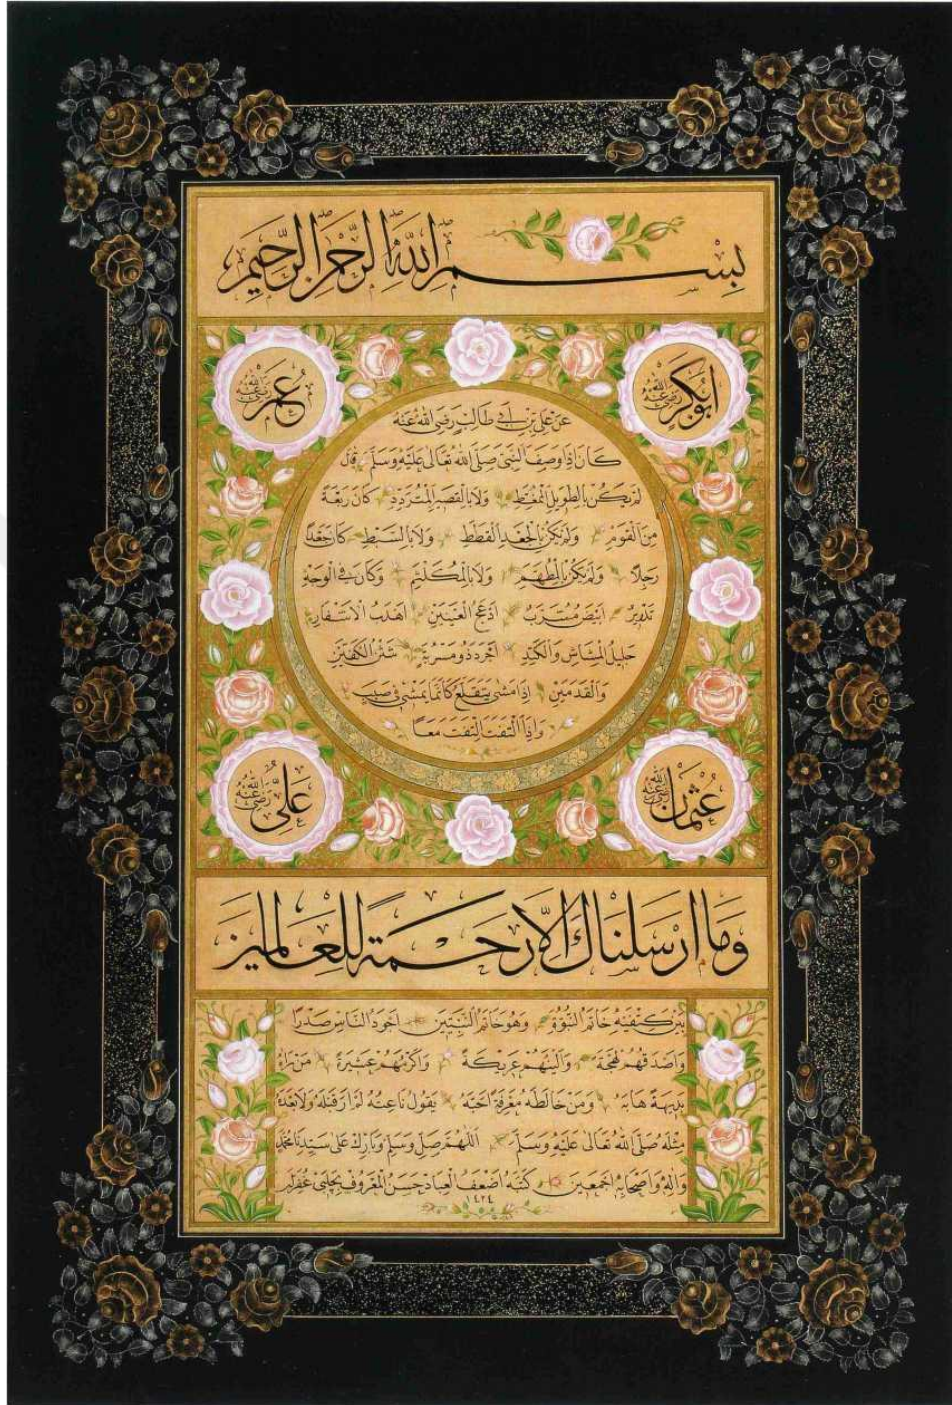 بسم الله الرحمن الرحيم
ابوبكر رضي الله عنه
عمر رضي الله عنه
عن علي بن ابي طالب رضي الله عنه
كان اذا وصف النبي صلى الله تعالى عليه وسلم قال
لم يكن بالطويل الممغط ولا بالقصير المتردد كان ربعة
من القوم ولم يكن بالجعد القطط ولا بالسبط كان جعدا
رجلا ولم يكن بالمطهم ولا بالمكلثم وكان في الوجه
تدوير ابيض مشرب ادعج العينين اهدب الاشفار
جليل المشاش والكتد اجرد ذو مسربة شثن الكفين
والقدمين اذا مشى يتقلع كانما يمشي في صبب
واذا التفت التفت معا
عثمان رضي الله عنه
علي رضي الله عنه
وما ارسلناك الا رحمة للعالمين
بين كتفيه خاتم النبوة وهو خاتم النبيين اجود الناس صدرا
واصدقهم لهجة والينهم عريكة واكرمهم عشيرة من راه
بديهة هابه ومن خالطه معرفة احبه يقول ناعته لم ار قبله ولا بعده
مثله صلى الله تعالى عليه وسلم اللهم صل وسلم وبارك على سيدنا محمد
واله واصحابه اجمعين كتبه اضعف العباد حسن المعروف بچلبي غفر له
١٤٢٤